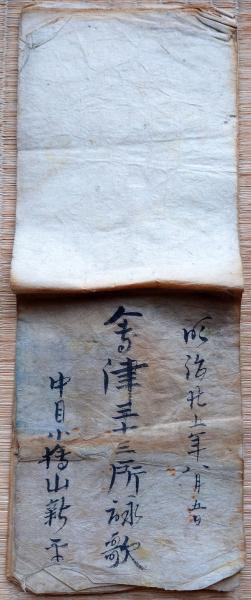 明治廿五年八月吉日
會津三十三所詠歌
中目小橋山新平